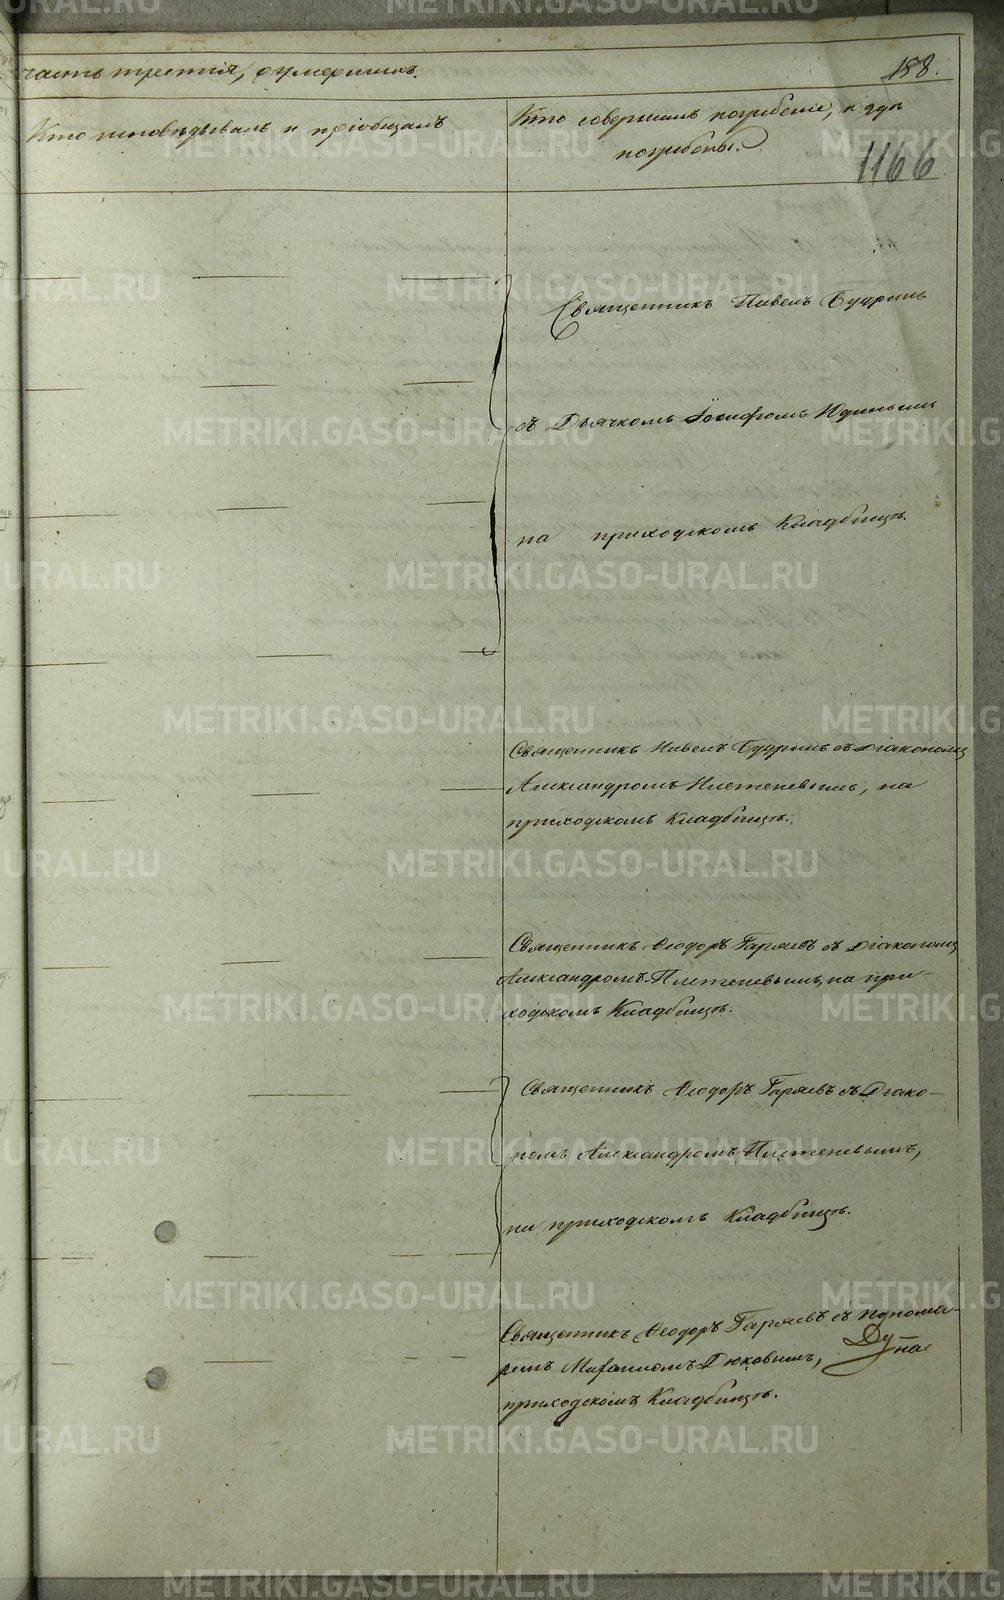 часть третія, о умершихъ.
158.
Кто исповѣдывалъ и пріобщалъ
Кто совершалъ погребеніе, и гдѣ
погребены.
1166
Священникъ Павелъ Будринъ
съ Дьячкомъ Іосифомъ Юдинымъ
на приходскомъ Кладбищѣ.
Священникъ Павелъ Будринъ съ Діакономъ
Александромъ Плетеневымъ, на
приходскомъ Кладбищѣ.
Священникъ Ѳеодоръ Гаряевъ съ Діакономъ
Александромъ Плетеневымъ, на при-
ходскомъ Кладбищѣ.
Священникъ Ѳеодоръ Гаряевъ съ Діако-
номъ Александромъ Плетеневымъ,
на приходскомъ Кладбищѣ.
Священникъ Ѳеодоръ Гаряевъ съ Понома-
ремъ Михаиломъ Дюковымъ, на
приходскомъ Кладбищѣ.
METRIKI.GASO-URAL.RU